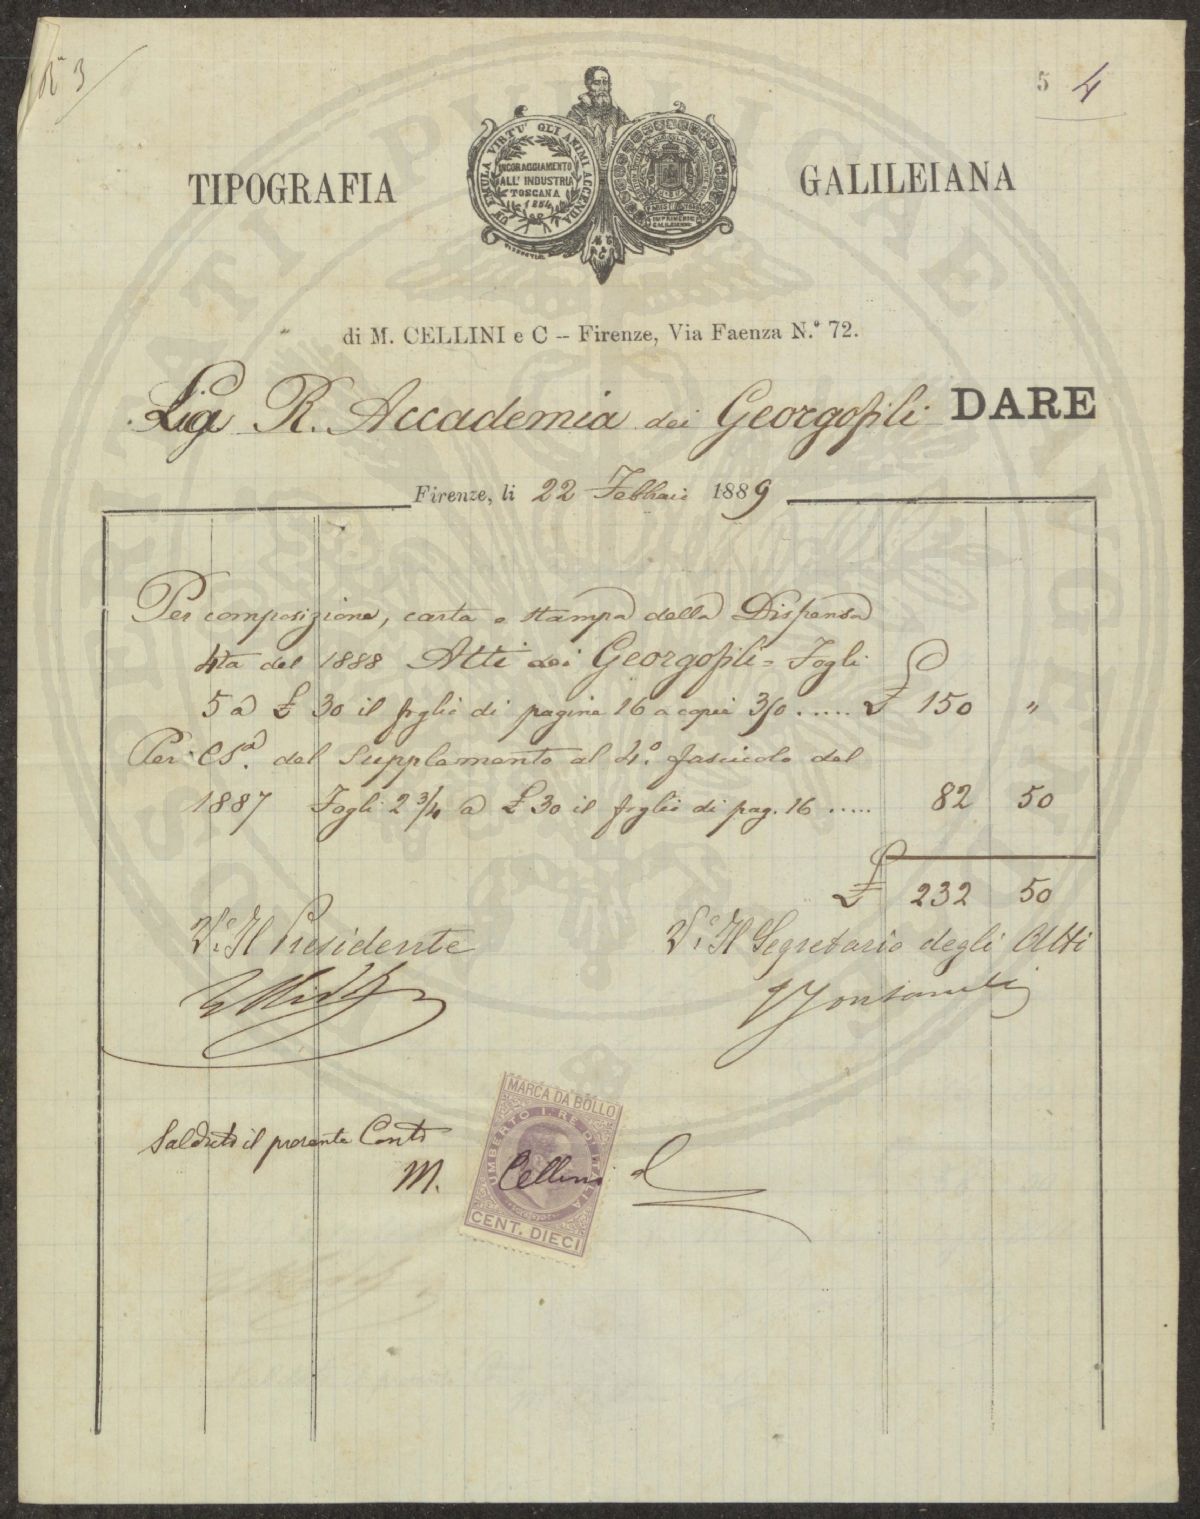 N° 3
5 4
UN' EMULA VIRTU' GLI ANIMI ACCENDA
INCORAGGIAMENTO
ALL' INDUSTRIA
TOSCANA
1854
TIPOGRAFIA GALILEIANA
di M. CELLINI e C – Firenze, Via Faenza N.° 72.
La R. Accademia dei Georgofili DARE
Firenze, li 22 Febbraio 1889
Per composizione, carta e stampa della Dispensa
4ta del 1888 Atti dei Georgofili = Fogli
5 a £ 30 il foglio di pagine 16 a copie 350 ..... £ 150 "
Per Csa. del Supplemento al 4.° fascicolo del
1887 Fogli 2 3/4 a £ 30 il foglio di pag. 16 ..... 82 50
£ 232 50
V.° Il Presidente V.° Il Segretario degli Atti
Saldato il presente Conto
M. Cellini
MARCA DA BOLLO
UMBERTO I. RE D'ITALIA
CENT. DIECI